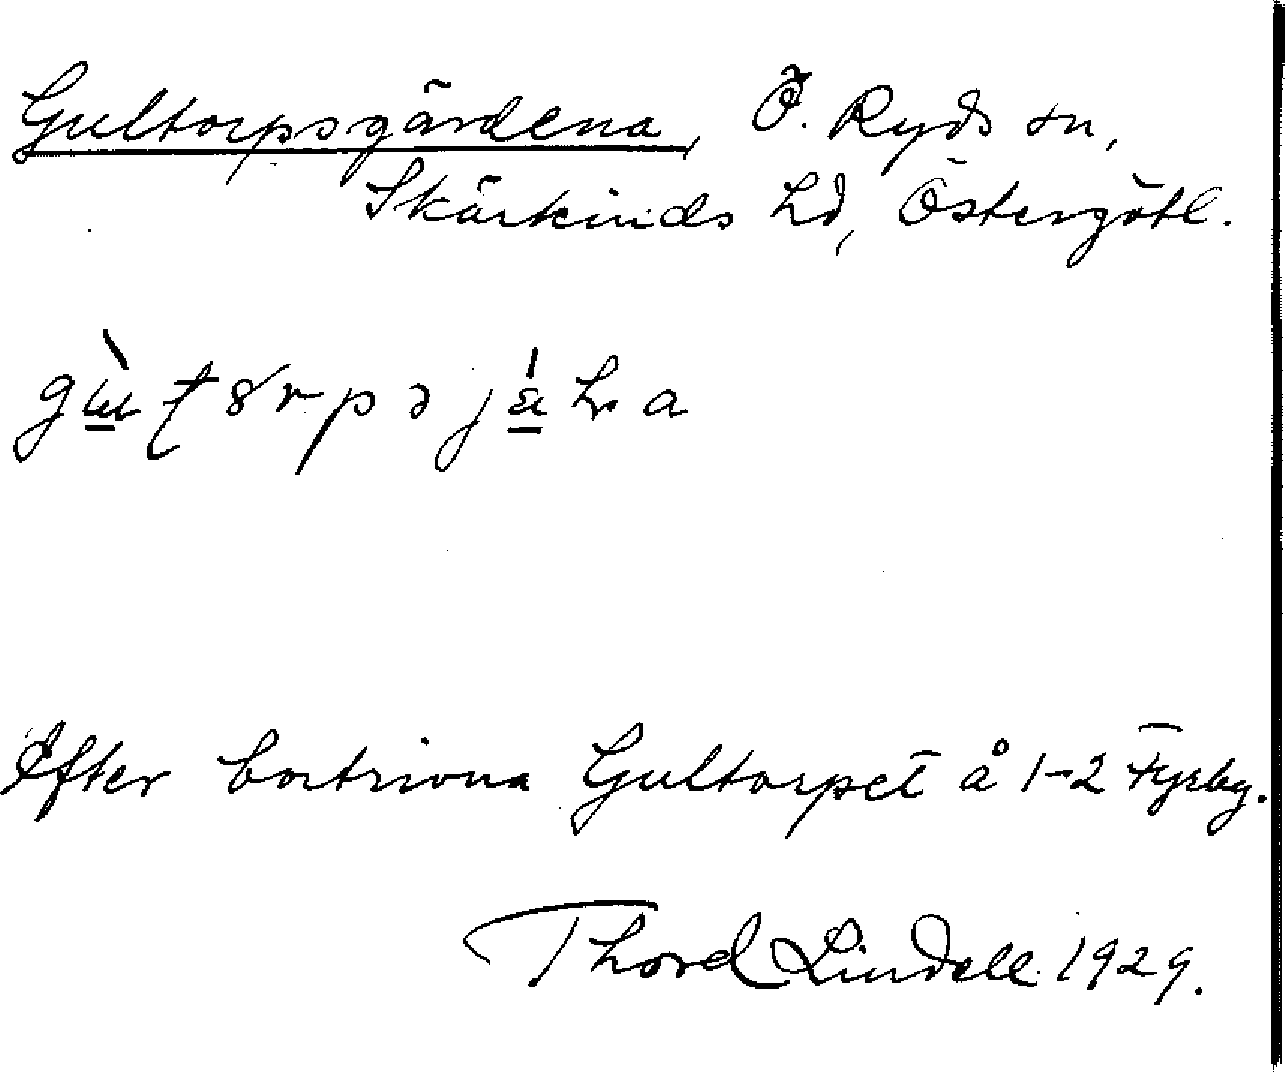 Gultorpsgärdena, Ö. Ryds sn,
Skärkinds hd, Östergötl.
Efter bortrivna Gultorpet å 1-2 Fyrby.
Thord Lindell 1929.